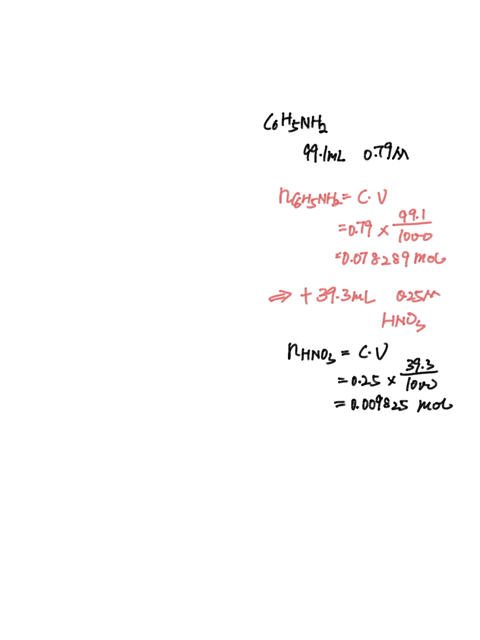 C6H5NH2
99.1mL 0.79M
nC6H5NH2 = C·V
= 0.79 × 99.1/1000
= 0.078289 mol
⇒ + 39.3mL 0.25M
HNO3
nHNO3 = C·V
= 0.25 × 39.3/1000
= 0.009825 mol